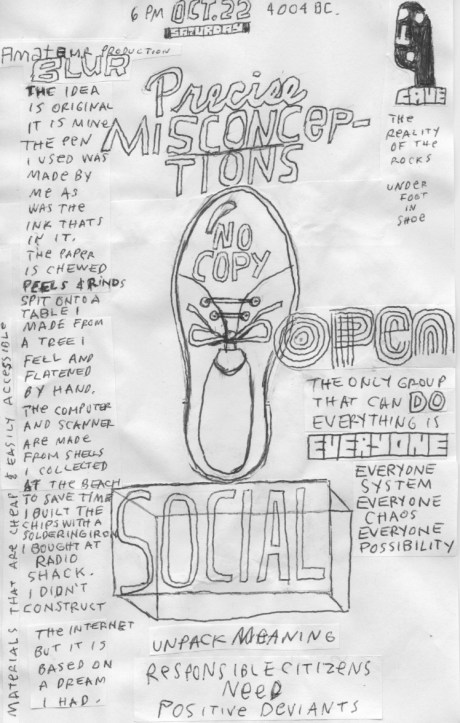 6 PM OCT. 22 4004 BC.
SATURDAY
Amateur PRODUCTION
BLUR
THE IDEA
IS ORIGINAL
IT IS MINE
THE PEN
I USED WAS
MADE BY
ME AS
WAS THE
INK THATS
IN IT.
THE PAPER
IS CHEWED
PEELS & RINDS
SPIT ONTO A
TABLE I
MADE FROM
A TREE I
FELL AND
FLATENED
BY HAND.
THE COMPUTER
AND SCANNER
ARE MADE
FROM SHELLS
I COLLECTED
AT THE BEACH
TO SAVE TIME
I BUILT THE
CHIPS WITH A
SOLDERING IRON
I BOUGHT AT
RADIO
SHACK.
I DIDN'T
CONSTRUCT
THE INTERNET
BUT IT IS
BASED ON
A DREAM
I HAD.
MATERIALS THAT ARE CHEAP & EASILY ACCESSIBLE
Precise
MISCONCEP-
TIONS
NO
COPY
SOCIAL
UNPACK MEANING
RESPONSIBLE CITIZENS
NEED
POSITIVE DEVIANTS
CAVE
THE
REALITY
OF THE
ROCKS
UNDER
FOOT
IN
SHOE
OPEN
THE ONLY GROUP
THAT CAN DO
EVERYTHING IS
EVERYONE
EVERYONE
SYSTEM
EVERYONE
CHAOS
EVERYONE
POSSIBILITY